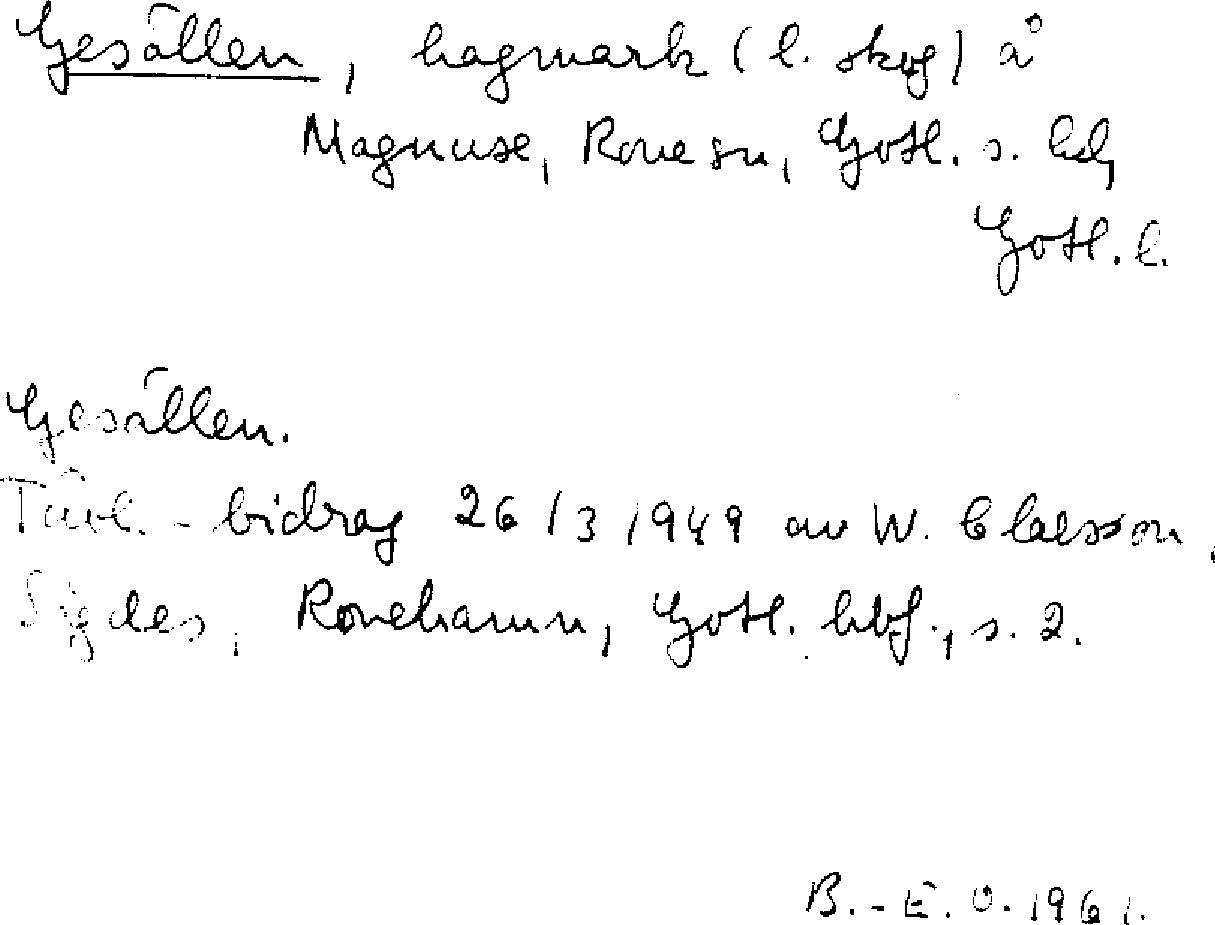 Gesällen, hagmark (l. skog) å
Magnuse, Rone sn, Gotl. s. hd,
Gotl. l.
Gesällen.
Tävl.-bidrag 26/3 1949 av W. Claesson,
Sigdes, Ronehamn, Gotl. hbf., s. 2.
B.-E. O. 1961.